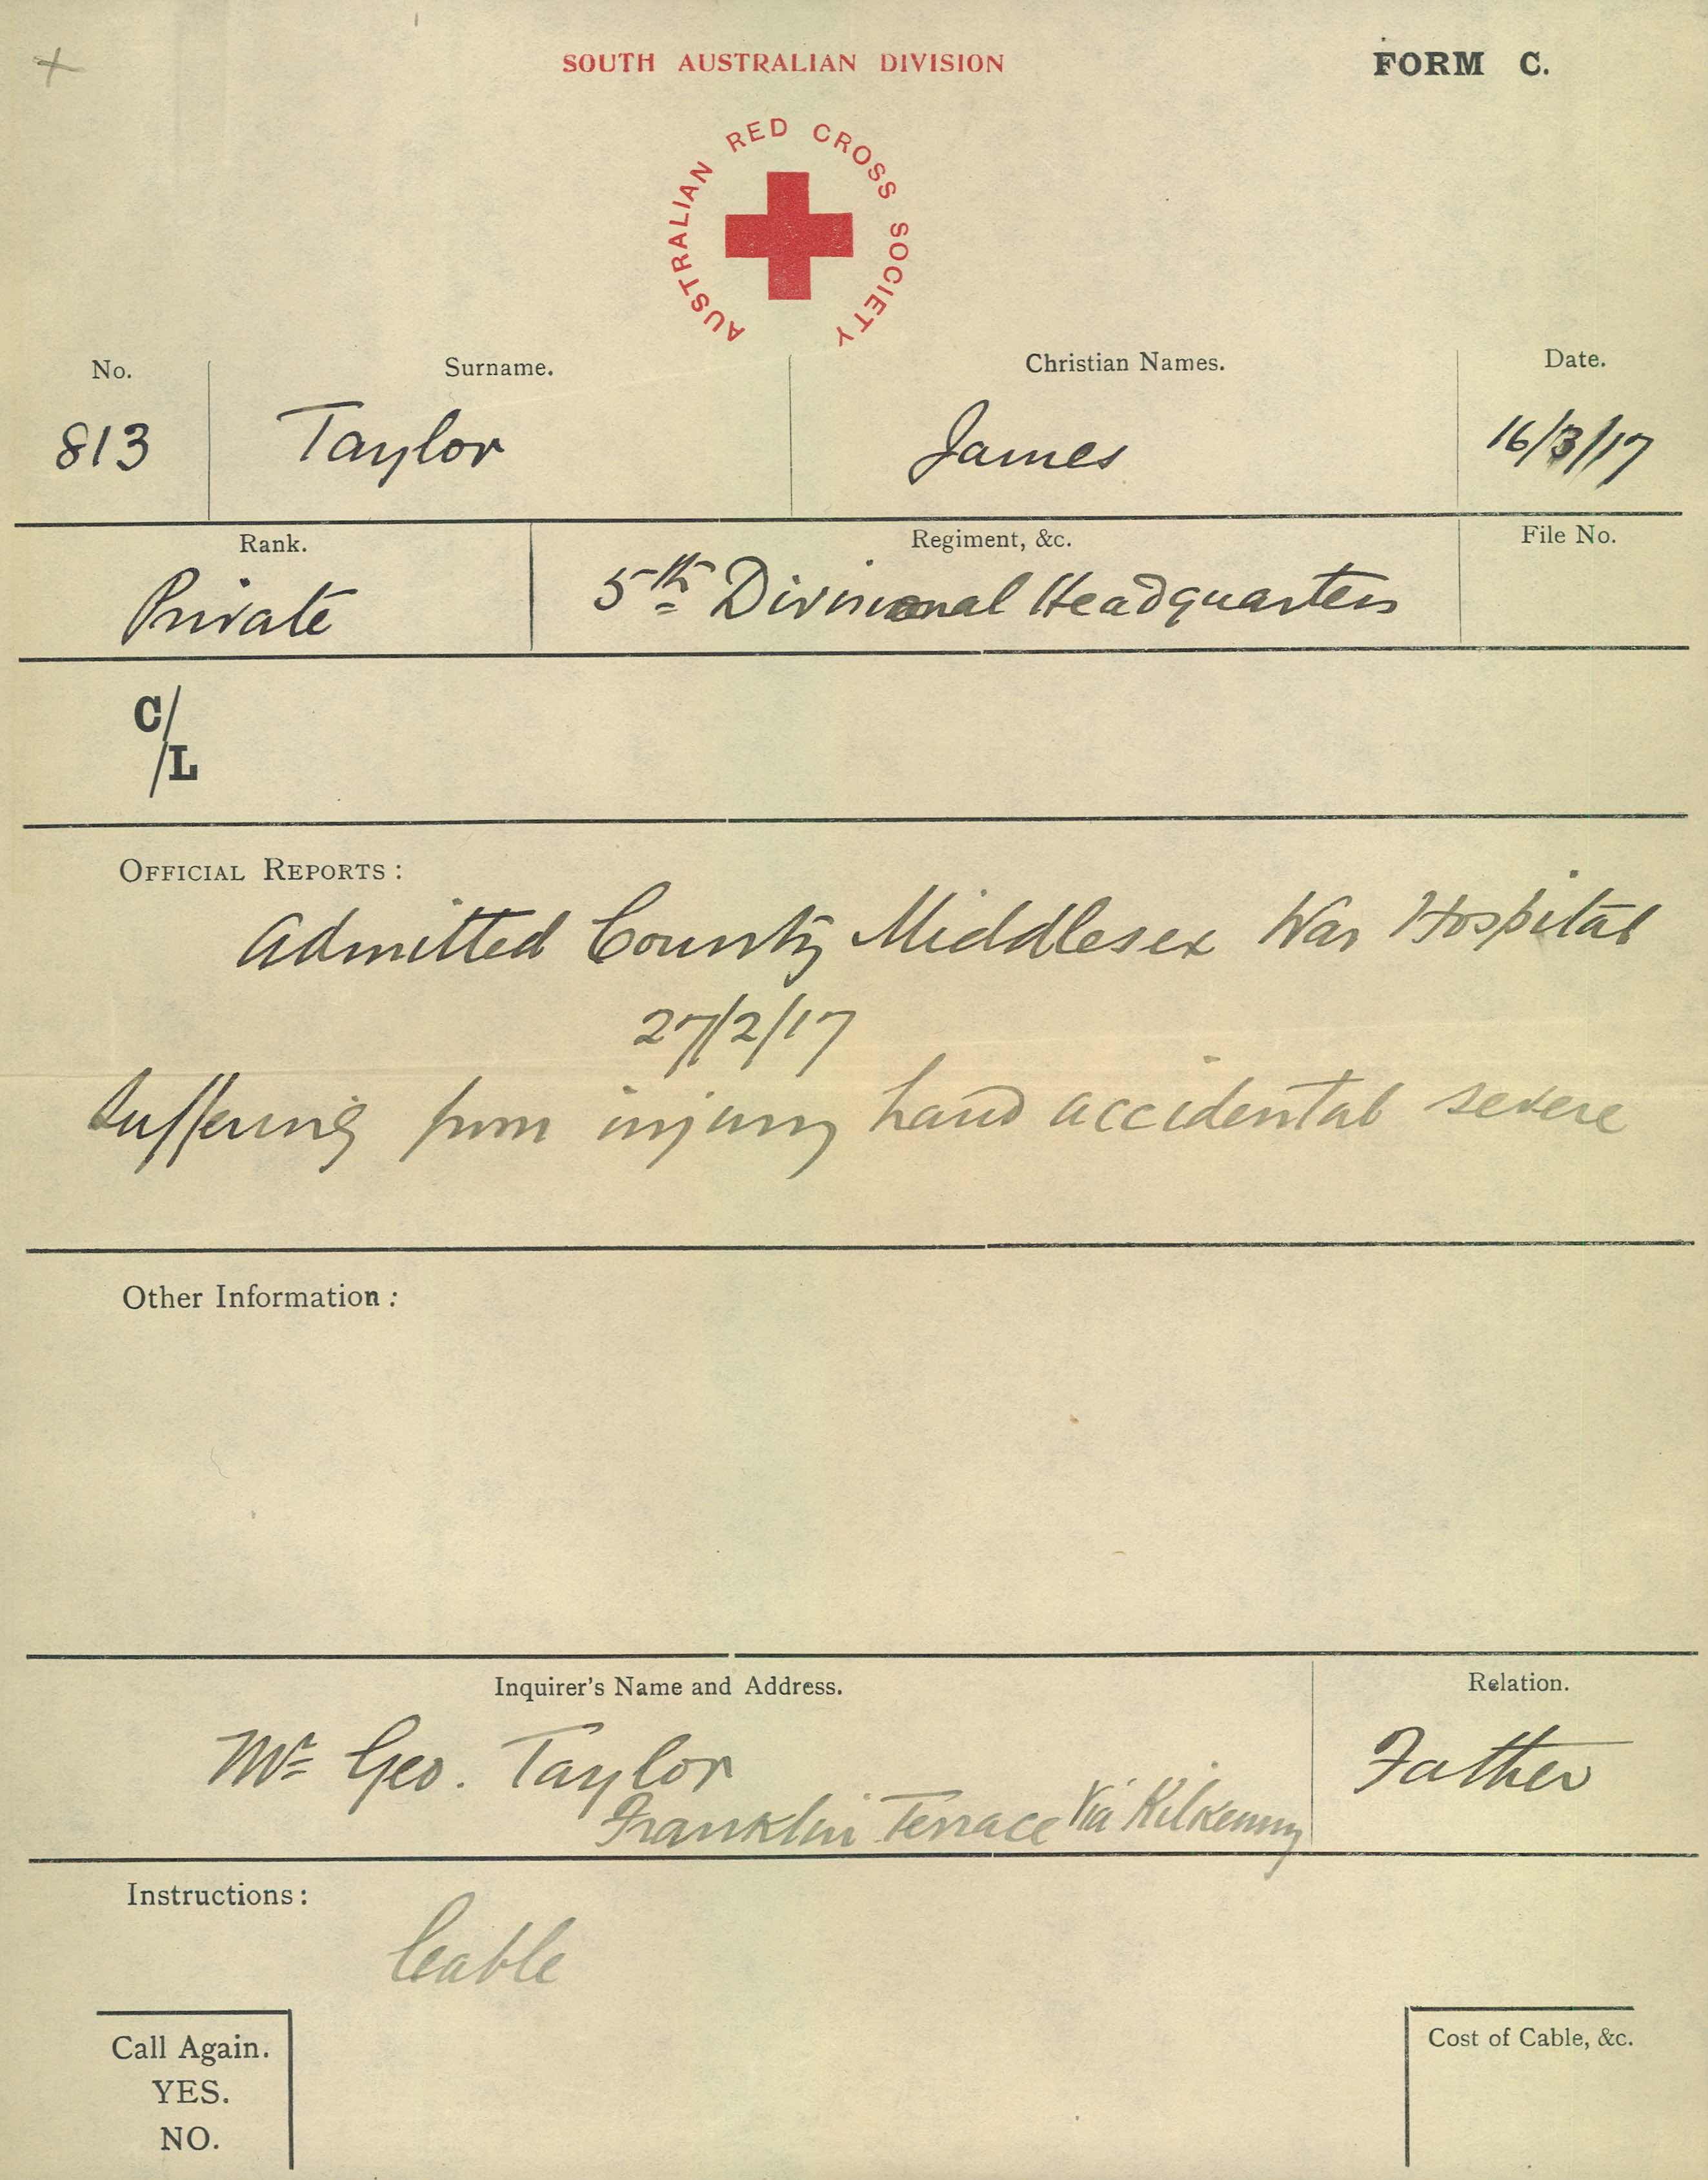 SOUTH AUSTRALIAN DIVISION
FORM C.
AUSTRALIAN RED CROSS SOCIETY
No. Surname. Christian Names. Date.
813 Taylor James 16/3/17
Rank. Regiment, &c. File No.
Private 5th Divisional Headquarters
C/
/L
OFFICIAL REPORTS :
Admitted County Middlesex War Hospital
27/2/17
Suffering from injury hand accidental severe
Other Information :
Inquirer's Name and Address. Relation.
Mr Geo. Taylor Father
Franklin Terrace Via Kilkenny
Instructions :
Cable
Call Again.
YES.
NO.
Cost of Cable, &c.